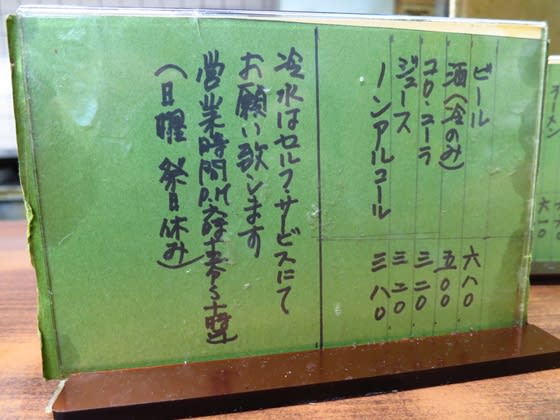 ビール 六八〇
酒(冷のみ) 五〇〇
コカ・コーラ 三二〇
ジュース 三二〇
ノンアルコール 三八〇
冷水はセルフ・サービスにて
お願い致します
営業時間P.M.六時
(日曜 祭日休み)